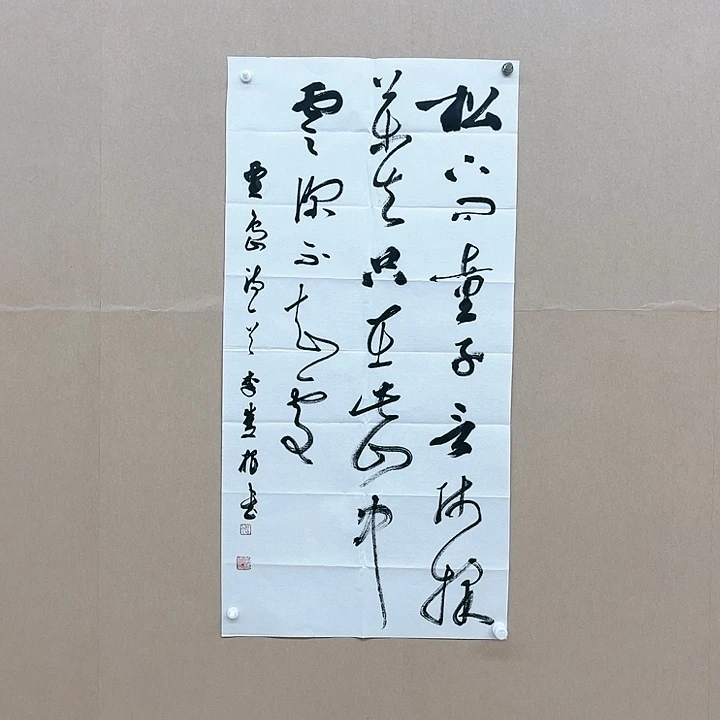 松下问童子言师採
药去只在此山中
云深不知处
贾岛诗一首 李贵
书